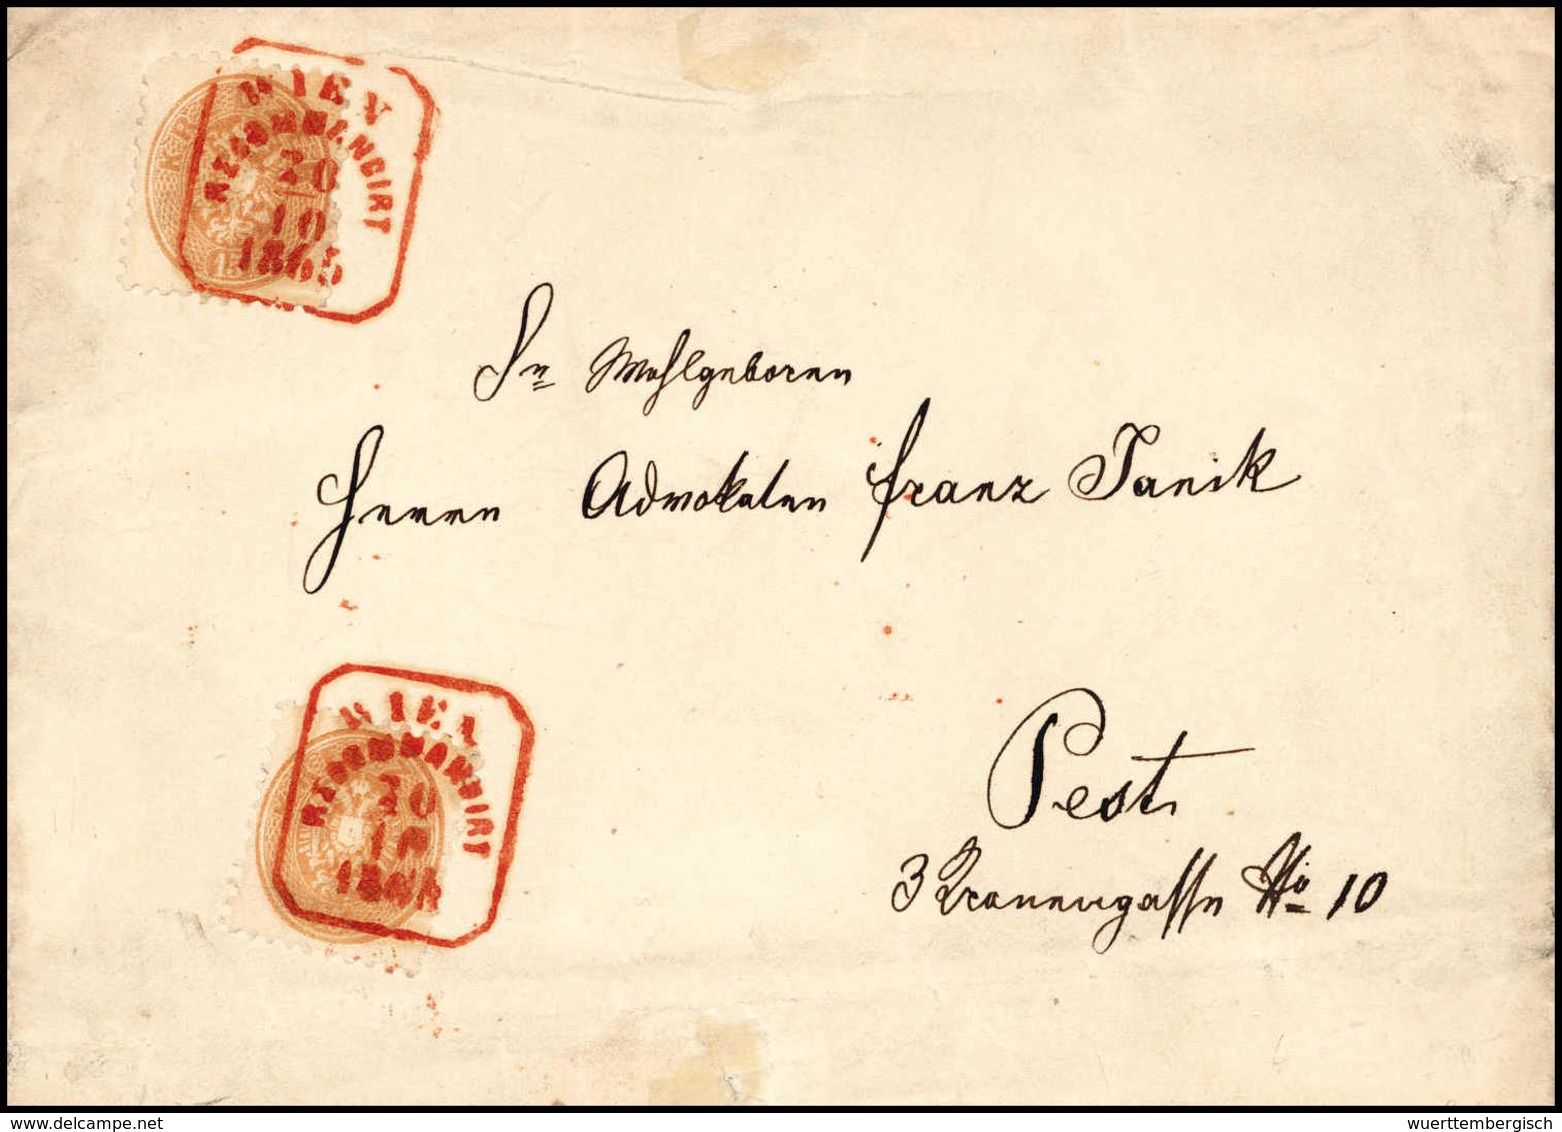 WIEN
RECOMMANDIRT
20
10
1865
K·R
15
Sr Wohlgeboren
Herrn Advokaten Franz Janik
WIEN
RECOMMANDIRT
20
10
Pest
3 Kronengasse No 10
© www.delcampe.net
wuerttembergisch